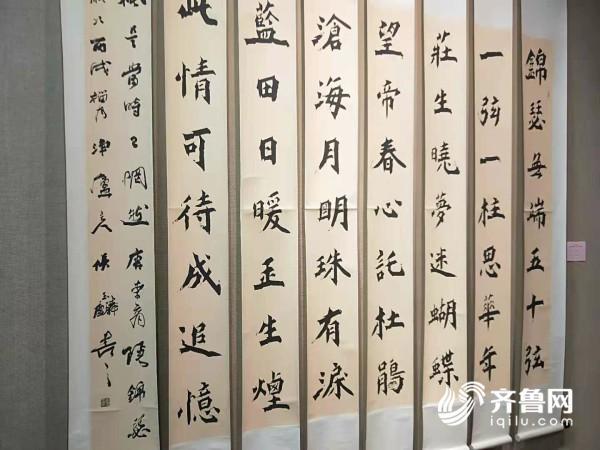 錦瑟無端五十弦
一弦一柱思華年
莊生曉夢迷蝴蝶
望帝春心託杜鵑
滄海月明珠有淚
藍田日暖玉生煙
此情可待成追憶
是當時已惘然 唐李商隱錦瑟
丙戌
齐鲁网
iqilu.com